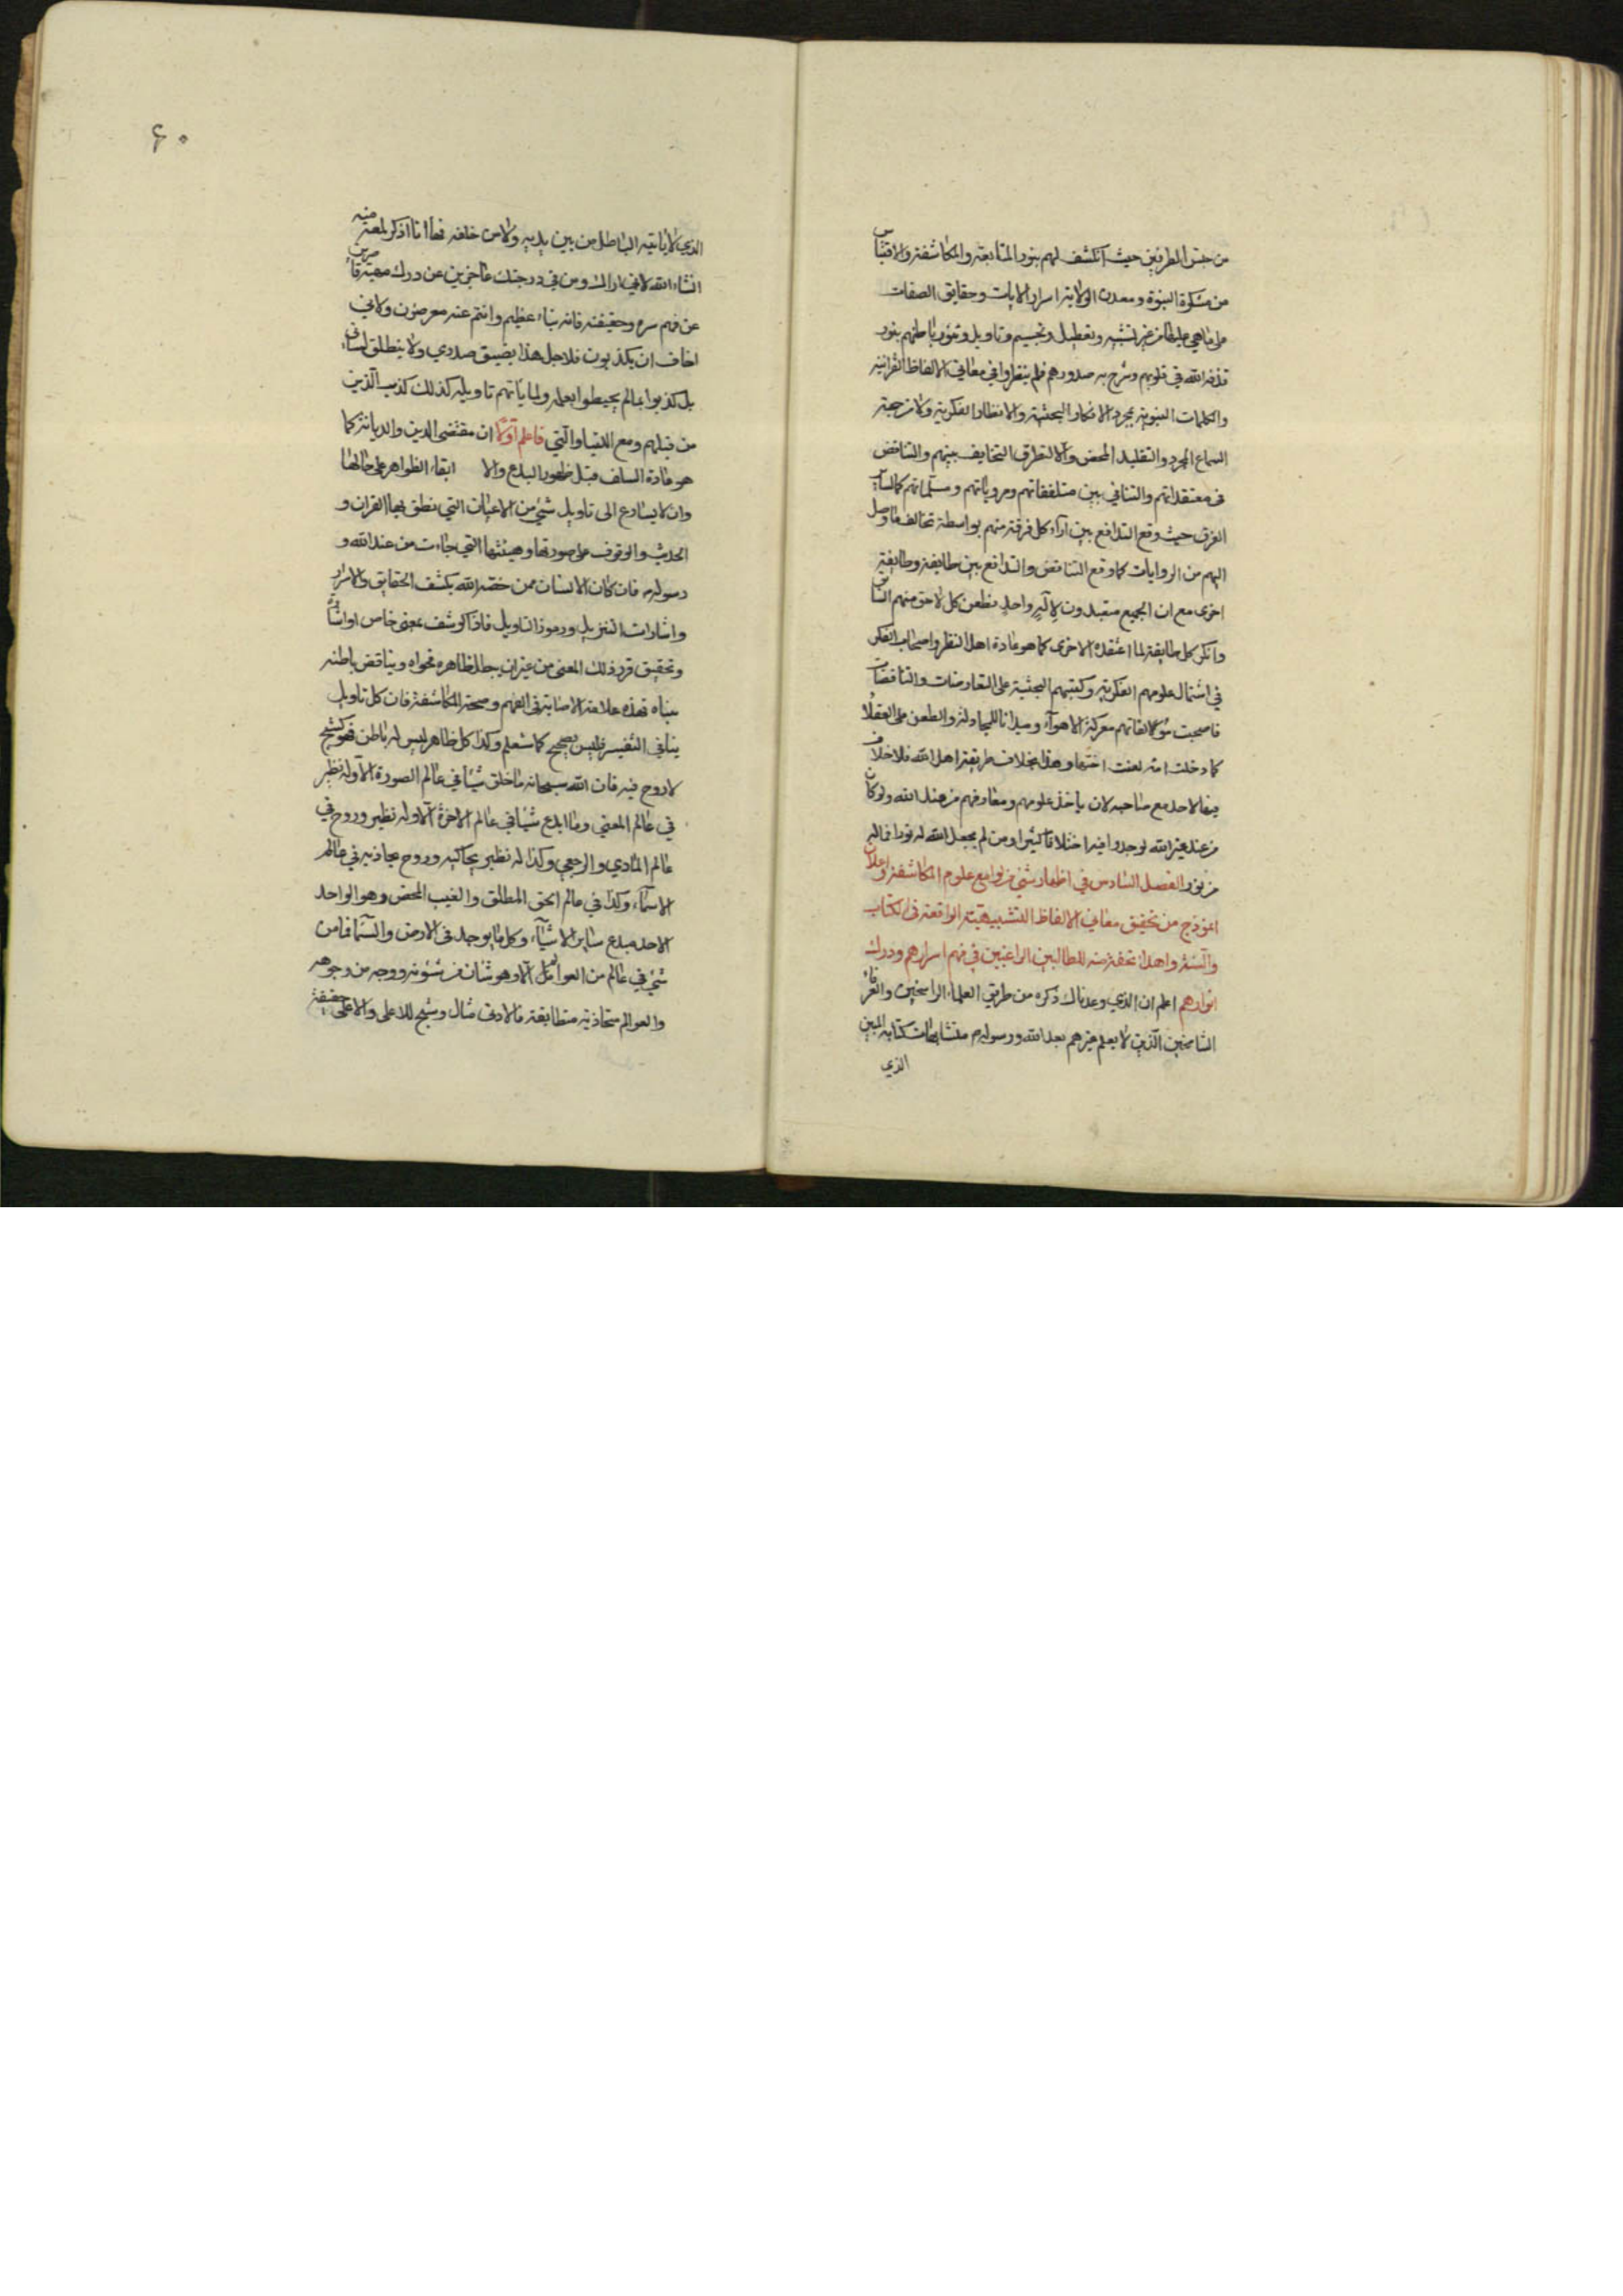 من جنس الطرفين حيث انكشف لهم بنور المتابعة والمكاشفة والاقتباس
من مشكوة النبوة ومعدن الولاية اسرار الايات وحقايق الصفات
على ماهي عليها من غير تشبيه وتعطيل وتجسيم وتاويل وتنور باطنهم بنور
قذفه الله في قلوبهم وشرح به صدورهم فلم ينظروا في معاني الالفاظ القرانية
والكلمات النبوية بمجرد الافكار البحثية والانظار الفكرية ولا من جهة
السماع المجرد والتقليد المحض والا لتطرق التخايف بينهم والتناقض
في معتقداتهم والتنافي بين متلفقاتهم ومروياتهم ومسلماتهم كالساير
الفرق حيث وقع التدافع بين آراء كل فرقة منهم بواسطة تخالف ما وصل
اليهم من الروايات كما وقع التناقض والتدافع بين طايفة وطايفة
اخرى مع ان الجميع متعبدون لاله واحد فطعن كل لاحق منهم السابق
وانكر كل طايفة لما اعتقده الاخرى كما هو عادة اهل النظر واصحاب الفكر
في اشتمال علومهم الفكرية وكتبهم البحثية على التعارضات والتناقضات
فاصبحت مؤلفاتهم معركة الاهوآء وميدانا للمجادلة والطعن على العقلاء
كما دخلت امة لعنت اختها وهذا بخلاف طريقة اهل الله فلا خلاف
فيها لاحد مع صاحبه لان ماخذ علومهم ومعارفهم من عند الله ولو كان
من عند غير الله لوجدوا فيه اختلافا كثيرا ومن لم يجعل الله له نورا فما له
من نور الفصل السادس في اظهار شئ من لوامع علوم المكاشفة واعلان
انموذج من تحقيق معاني الالفاظ التشبيهية الواقعة في الكتاب
والسنة واهداء تحفة منه للطالبين الراغبين في فهم اسرارهم ودرك
انوارهم اعلم ان الذي وعدناك ذكره من طريق العلماء الراسخين والعرفاء
الشامخين الذين لا يعلم غيرهم بعد الله ورسوله متشابهات كتابه المبين
الذي
۶۰
الذي لا ياتيه الباطل من بين يديه ولا من خلفه فها انا اذكر لمعة منه
انشاء الله لاني اراك ومن في درجتك عاجزين عن درك قاصرين
عن فهم سره وحقيقته فانه نباء عظيم وانتم عنه معرضون ولاني
اخاف ان يكذبون فلاجل هذا يضيق صدري ولا ينطلق لساني
بل كذبوا بما لم يحيطوا بعلمه ولما ياتهم تاويله كذلك كذب الذين
من قبلهم ومع اللتيا والتي فاعلم اولا ان مقتضى الدين والديانة كما
هو عادة السلف قبل ظهور البدع والا ابقاء الظواهر على حالها
وان لا يسارع الى تاويل شئ من الاعيان التي نطق بها القران و
الحديث والوقوف على صورتها وهيئتها التي جاءت من عند الله و
رسوله فان كان الانسان ممن خصه الله بكشف الحقايق والاسرار
واشارات التنزيل ورموز التاويل فاذا كوشف بمعنى خاص او اشارة
وتحقيق قرر ذلك المعنى من غير ان يبطل ظاهره فحواه ويناقض باطنه
مبناه فهذه علامة الاصابة في الفهم وصحة المكاشفة فان كل تاويل
ينافي التفسير فليس بصحيح كما ستعلم وكذا كل ظاهر ليس له باطن فهو كشبح
لا روح فيه فان الله سبحانه ما خلق شيئا في عالم الصورة الا وله نظير
في عالم المعنى وما ابدع شيئا في عالم الاخرة الا وله نظير وروح في
عالم المادي والرجعي وكذا له نظير يحاكيه وروح يحاذيه في عالم
الاسماء وكذا في عالم الحق المطلق والغيب المحض وهو الواحد
الاحد مبدع ساير الاشيآء وكل ما يوجد في الارض والسماء فما من
شئ في عالم من العوالم الا وهو شان من شؤنه ووجه من وجوهه
والعوالم متحاذية متطابقة فالادنى مثال وشبح للاعلى والاعلى حقيقة